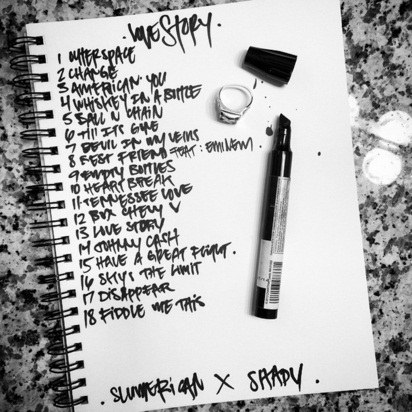 .LOVE STORY.
1 OUTERSPACE
2 CHANGE
3 AMERICAN YOU
4 WHISKEY IN A BOTTLE
5 BALL N CHAIN
6 TILL ITS GONE
7 DEVIL IN MY VEINS
8 BEST FRIEND FEAT: EMINEM
9 EMPTY BOTTLES
10 HEARTBREAK
11 TENNESSEE LOVE
12 BOX CHEVY V
13 LOVE STORY
14 JOHNNY CASH
15 HAVE A GREAT FLIGHT.
16 SKY'S THE LIMIT
17 DISAPPEAR
18 FIDDLE ME THIS
. SLUMERICAN X SHADY .